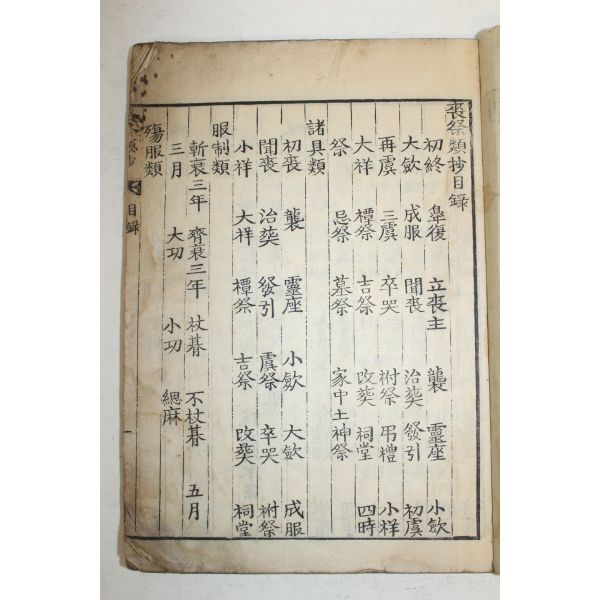 喪祭類抄目録
初終 皐復 立喪主 襲 靈座 小歛
大歛 成服 聞喪 治葬 發引 初虞
再虞 三虞 卒哭 祔祭 弔禮 小祥
大祥 禫祭 吉祭 改葬 祠堂 四時
祭 忌祭 墓祭 家中土神祭
諸具類
初喪 襲 靈座 小歛 大歛 成服
聞喪 治葬 發引 虞祭 卒哭 祔祭
小祥 大祥 禫祭 吉祭 改葬 祠堂
服制類
斬衰三年 齊衰三年 杖朞 不杖朞 五月
三月 大功 小功 緦麻
殤服類
目録